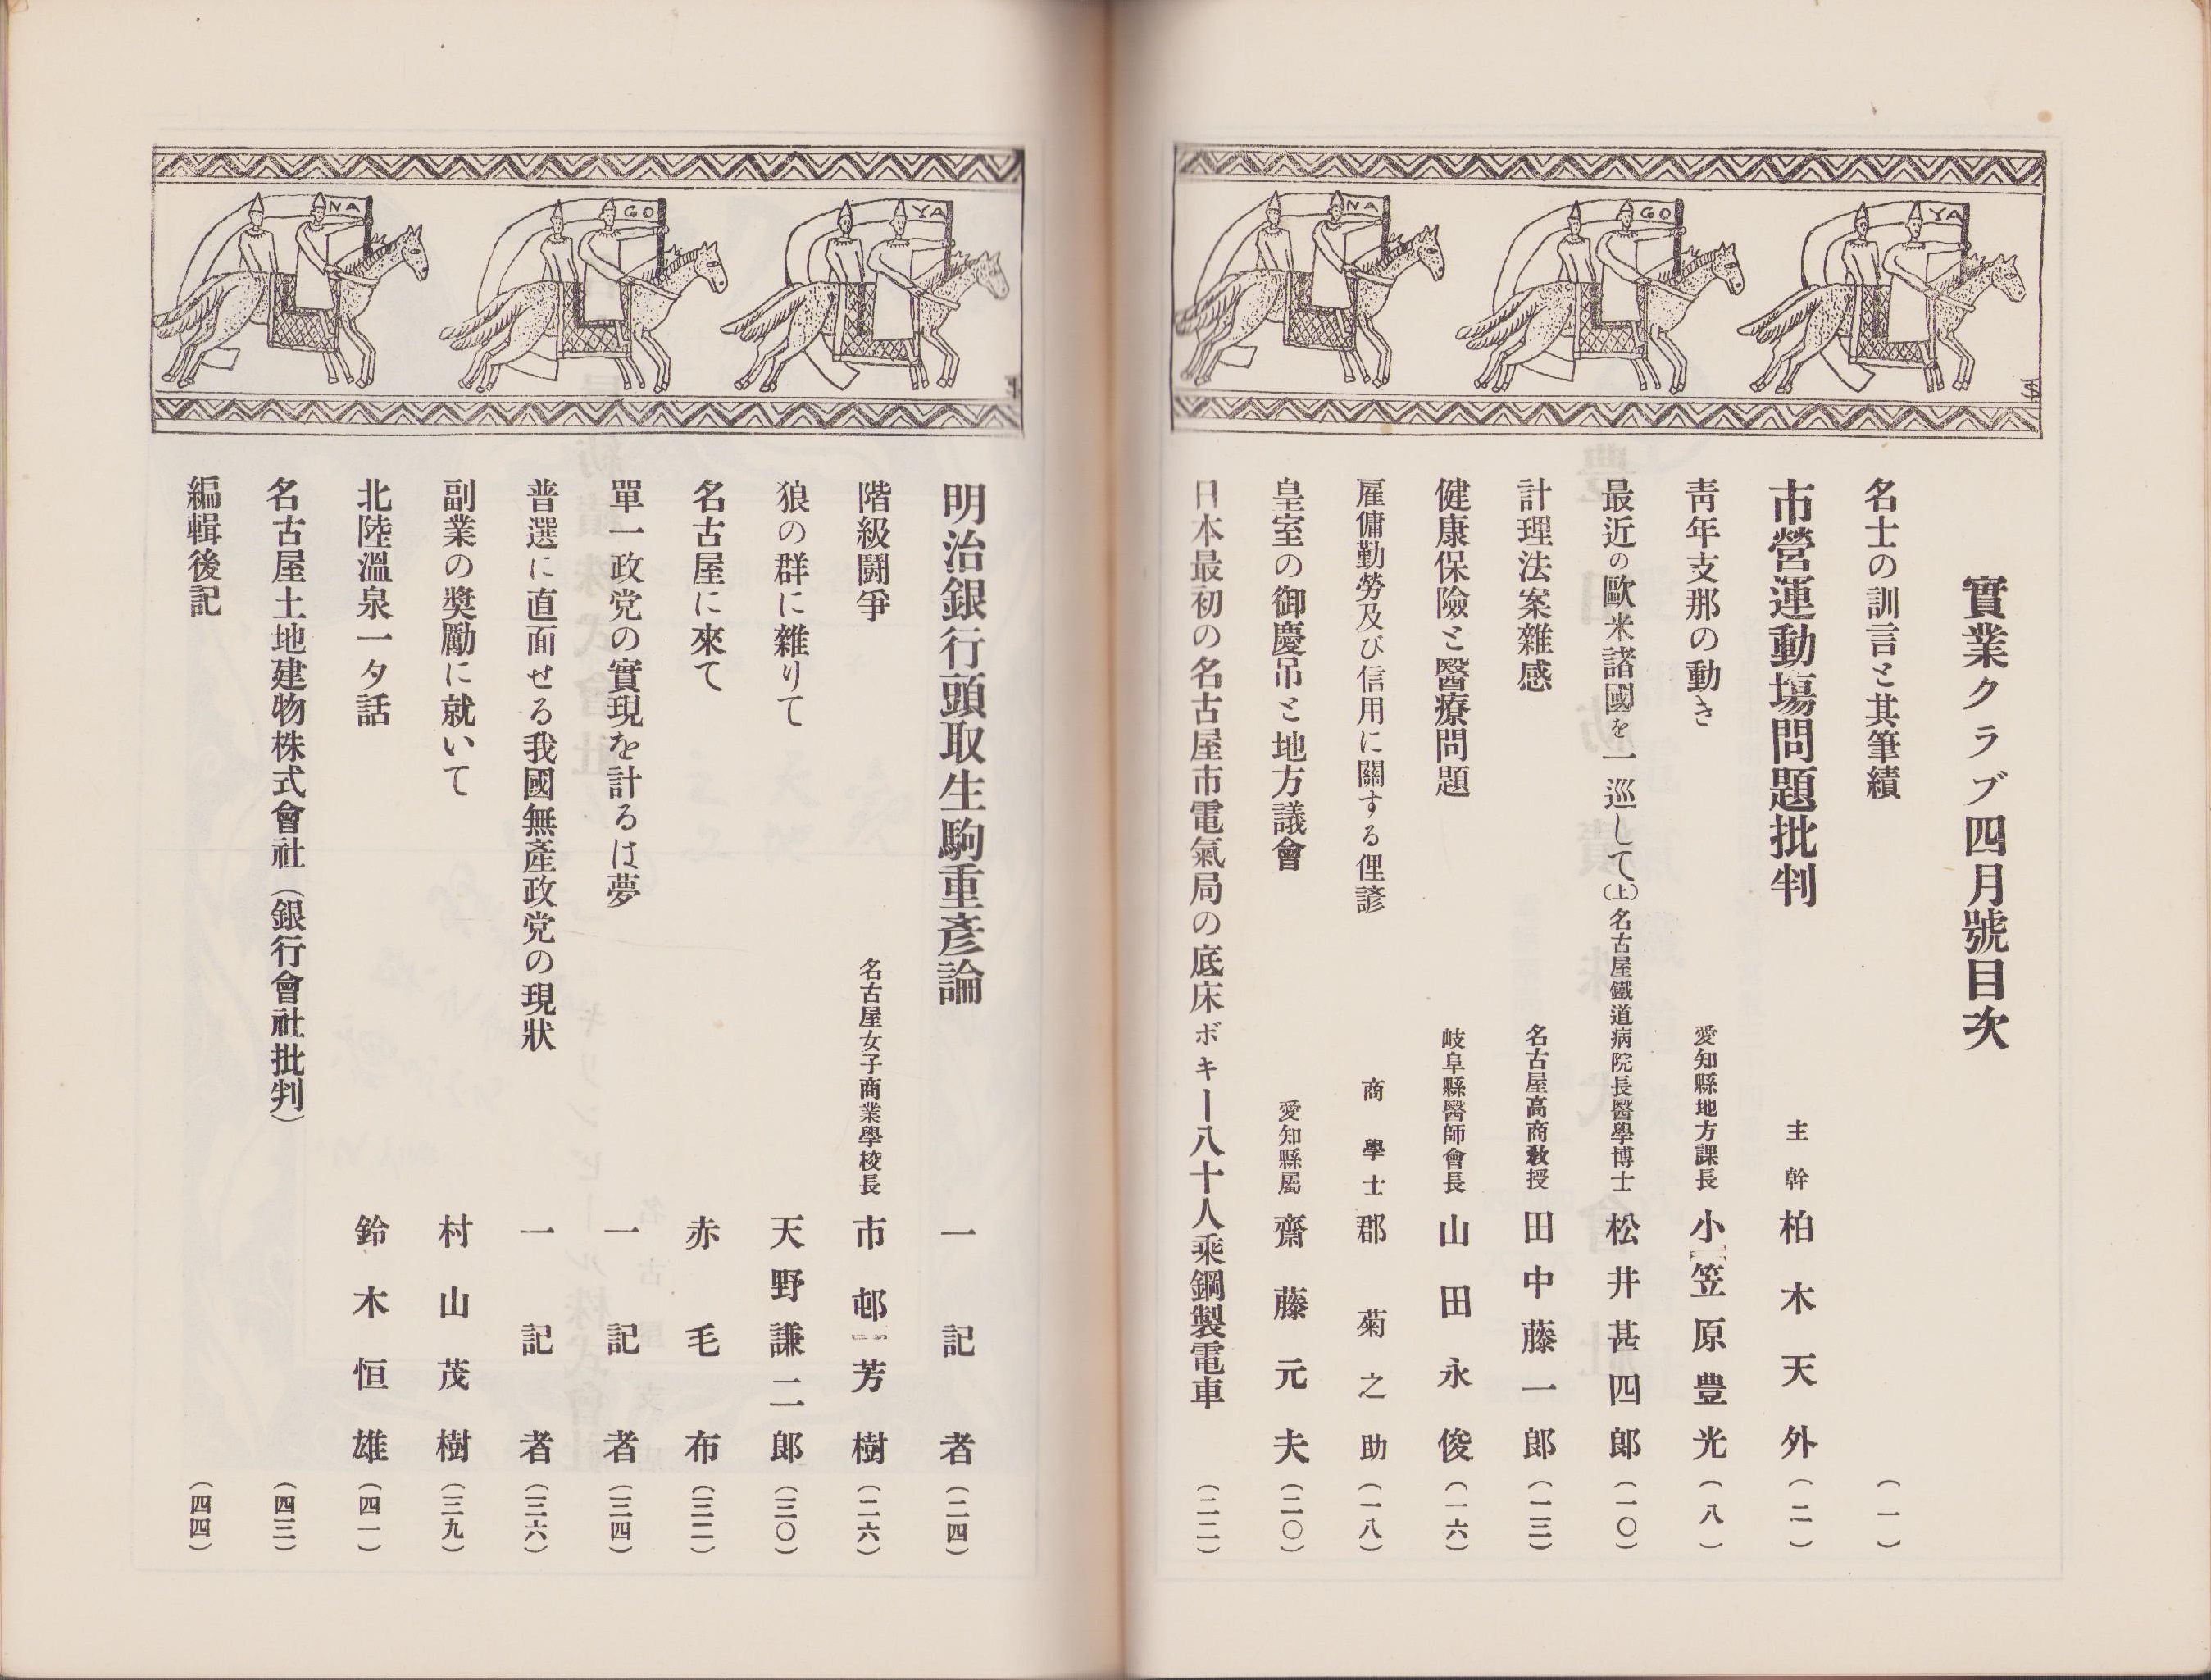 NA GO YA
實業クラブ四月號目次
名士の訓言と其筆績 (一)
市營運動場問題批判 主幹 柏木天外 (二)
靑年支那の動き 愛知縣地方課長 小笠原豊光 (八)
最近の歐米諸國を一巡して(上) 名古屋鐵道病院長醫學博士 松井甚四郎 (一〇)
計理法案雜感 名古屋高商敎授 田中藤一郎 (一三)
健康保險と醫療問題 岐阜縣醫師會長 山田永俊 (一六)
雇傭勤勞及び信用に關する俚諺 商學士 郡菊之助 (一八)
皇室の御慶吊と地方議會 愛知縣屬 齋藤元夫 (二〇)
日本最初の名古屋市電氣局の底床ボギー八十人乘鋼製電車 (二二)
NA GO YA
明治銀行頭取生駒重彥論 一記者 (二四)
階級鬪爭 名古屋女子商業學校長 市邨芳樹 (二六)
狼の群に雜りて 天野謙二郎 (三〇)
名古屋に來て 赤毛布 (三二)
單一政党の實現を計るは夢 一記者 (三四)
普選に直面せる我國無產政党の現狀 一記者 (三六)
副業の奬勵に就いて 村山茂樹 (三九)
北陸溫泉一夕話 鈴木恒雄 (四一)
名古屋土地建物株式會社(銀行會社批判) (四三)
編輯後記 (四四)